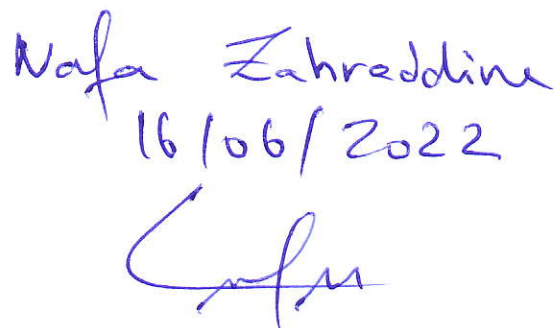 Nafa Zahreddine
16/06/2022